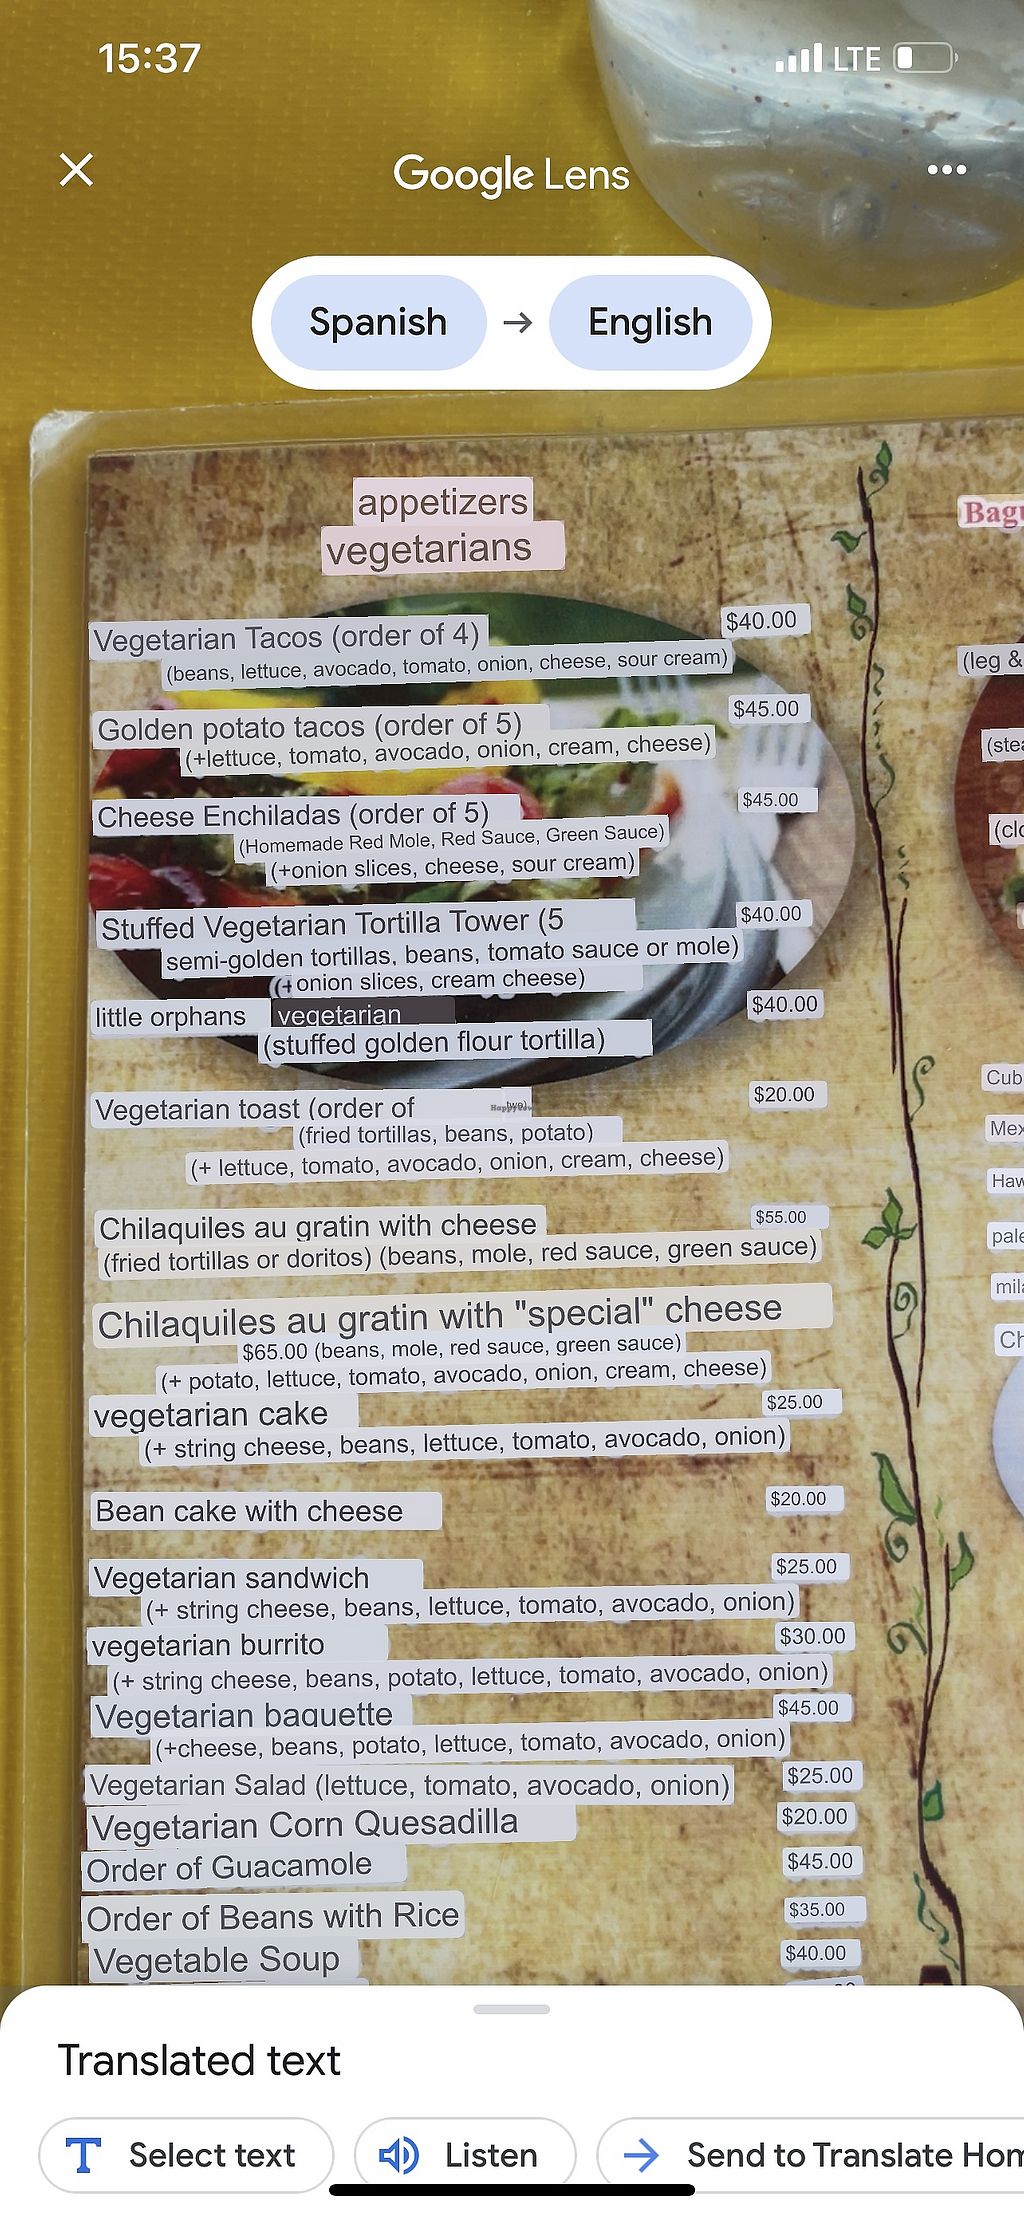 15:37
LTE
Google Lens
Spanish → English
appetizers
vegetarians
Vegetarian Tacos (order of 4) $40.00
(beans, lettuce, avocado, tomato, onion, cheese, sour cream)
Golden potato tacos (order of 5) $45.00
(+lettuce, tomato, avocado, onion, cream, cheese)
Cheese Enchiladas (order of 5) $45.00
(Homemade Red Mole, Red Sauce, Green Sauce)
(+onion slices, cheese, sour cream)
Stuffed Vegetarian Tortilla Tower (5 $40.00
semi-golden tortillas, beans, tomato sauce or mole)
(+onion slices, cream cheese)
little orphans vegetarian $40.00
(stuffed golden flour tortilla)
Vegetarian toast (order of two) $20.00
(fried tortillas, beans, potato)
(+ lettuce, tomato, avocado, onion, cream, cheese)
Chilaquiles au gratin with cheese $55.00
(fried tortillas or doritos) (beans, mole, red sauce, green sauce)
Chilaquiles au gratin with "special" cheese
$65.00 (beans, mole, red sauce, green sauce)
(+ potato, lettuce, tomato, avocado, onion, cream, cheese)
vegetarian cake $25.00
(+ string cheese, beans, lettuce, tomato, avocado, onion)
Bean cake with cheese $20.00
Vegetarian sandwich $25.00
(+ string cheese, beans, lettuce, tomato, avocado, onion)
vegetarian burrito $30.00
(+ string cheese, beans, potato, lettuce, tomato, avocado, onion)
Vegetarian baguette $45.00
(+cheese, beans, potato, lettuce, tomato, avocado, onion)
Vegetarian Salad (lettuce, tomato, avocado, onion) $25.00
Vegetarian Corn Quesadilla $20.00
Order of Guacamole $45.00
Order of Beans with Rice $35.00
Vegetable Soup $40.00
(leg &
Cub
Mex
Haw
pale
mila
Ch
Translated text
Select text
Listen
Send to Translate Hom